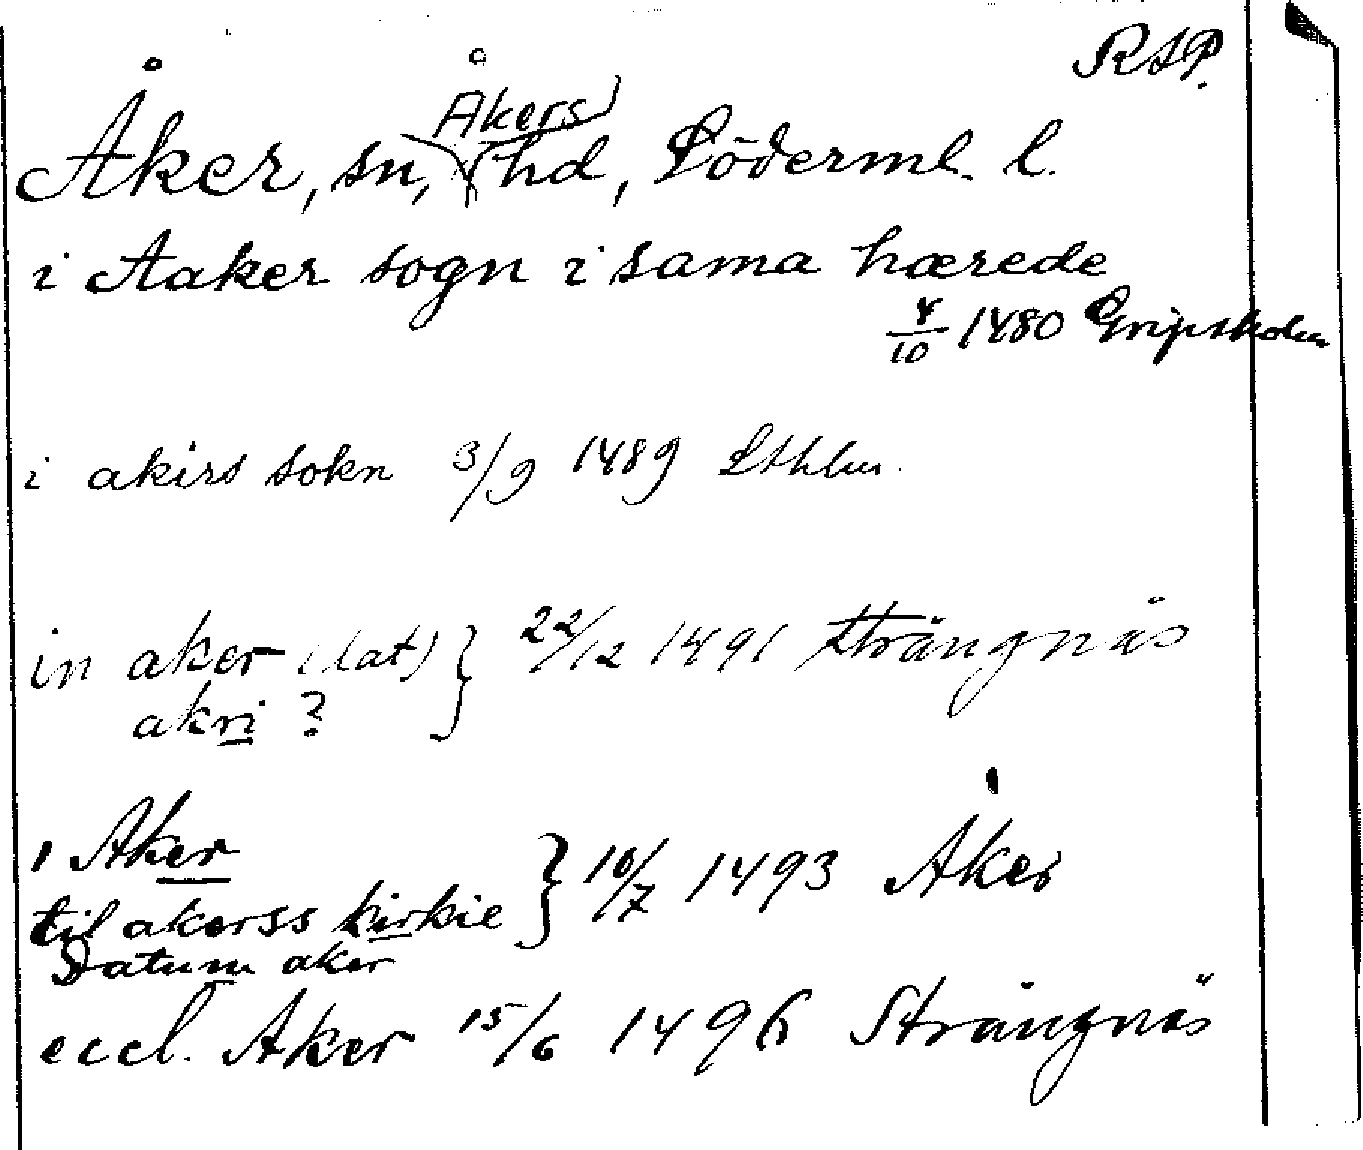 RAP.
Åker, sn, Åkers hd, Söderml. l.
i Aaker sogn i sama hærede
4/10 1480 Gripsholm
i akirs sokn 3/9 1489 Sthlm.
in aker (lat) } 22/12 1491 Strängnäs
akri ?
i Aker } 10/7 1493 Åker
til akerss kirkie
Datum aker
eccl. Aker 15/6 1496 Strängnäs